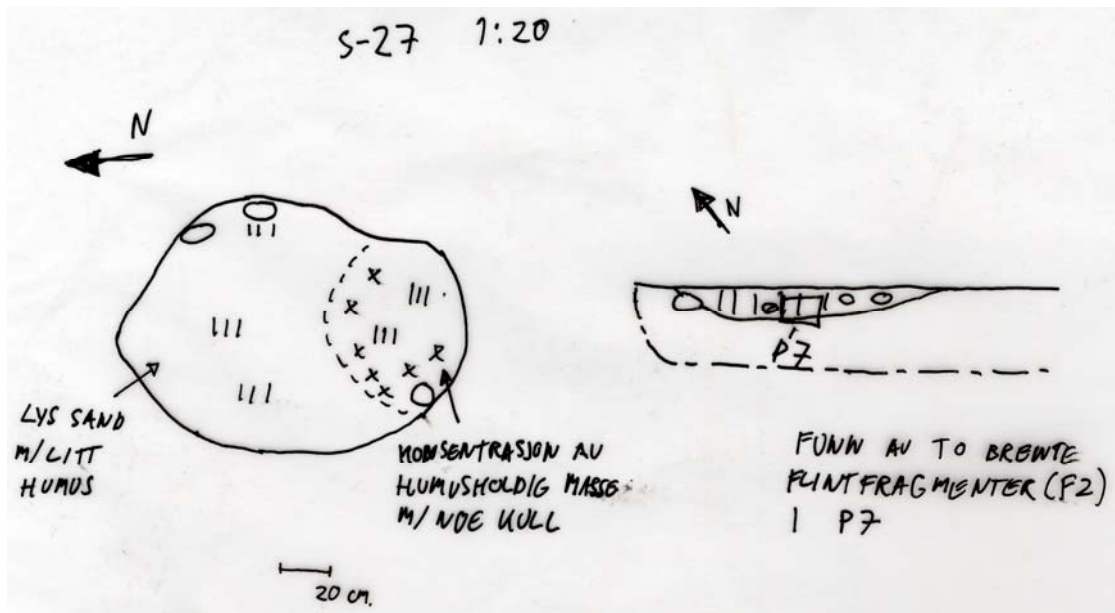 S-27 1:20
N
N
P7
LYS SAND
M/LITT
HUMUS
KONSENTRASJON AV
HUMUSHOLDIG MASSE
M/ NOE KULL
FUNN AV TO BRENTE
FLINTFRAGMENTER (F2)
I P7
20 cm.